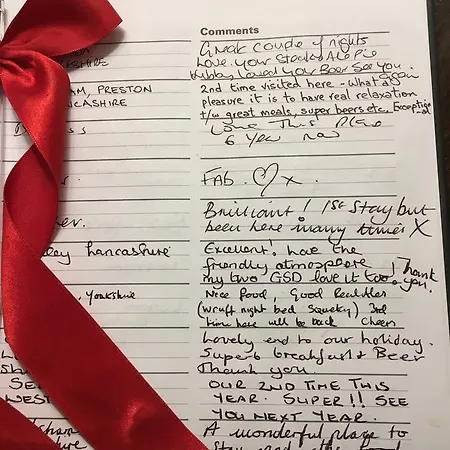 Comments
Great couple of nights
Love your Steak & Ale Pie
Hubby loved your Beer See you
Soon
SHIRE
M, PRESTON
NCASHIRE
2nd time visited here - what a
pleasure it is to have real relaxation
t/w great meals, super beers etc. Exception
-al
Love This Place
6 Year now
FAB. x
Brilliant! 1st Stay but
been here many times X
ley Lancashire
Excellent! Love the
friendly atmosphere
my two GSD love it too. Thank
you.
, Yorkshire
Nice food, Good Real Ales
night bed Squeky) 3rd
time here will be back Cheers
Lovely end to our holiday.
Superb breakfast & Beer
Thank you
OUR 2ND TIME THIS
YEAR. SUPER!! SEE
YOU NEXT YEAR.
A wonderful place to
Stay and the food